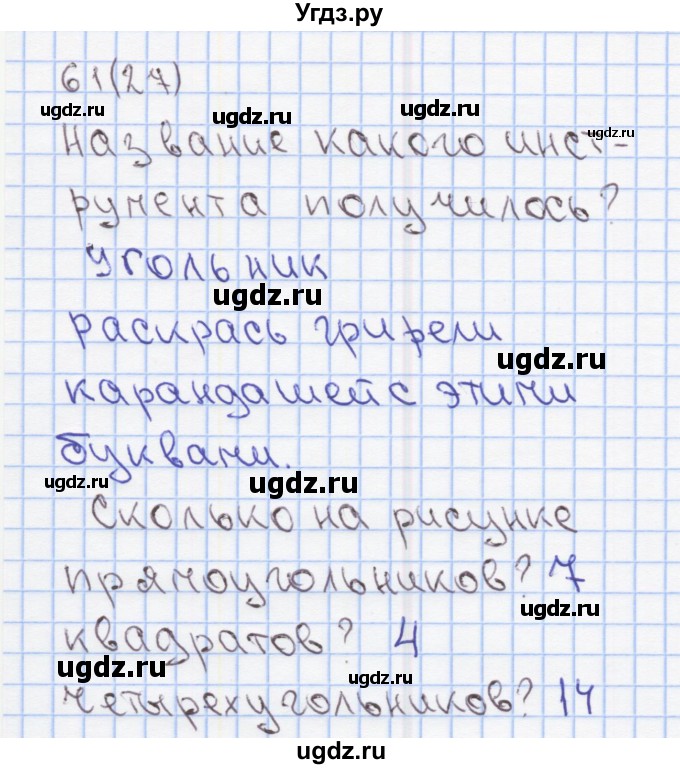 Угдз.ру
61(27)
ugdz.ru ugdz.ru ugdz.ru ugdz.ru
Название какого инст-
румента получилось?
угольник
ugdz.ru
раскрась грифели
ugdz.ru
карандашей с этими
буквами.
ugdz.ru ugdz.ru ugdz.ru
Сколько на рисунке
прямоугольников? 7
ugdz.ru
квадратов? 4
ugdz.ru ugdz.ru
четырехугольников? 14
ugdz.ru